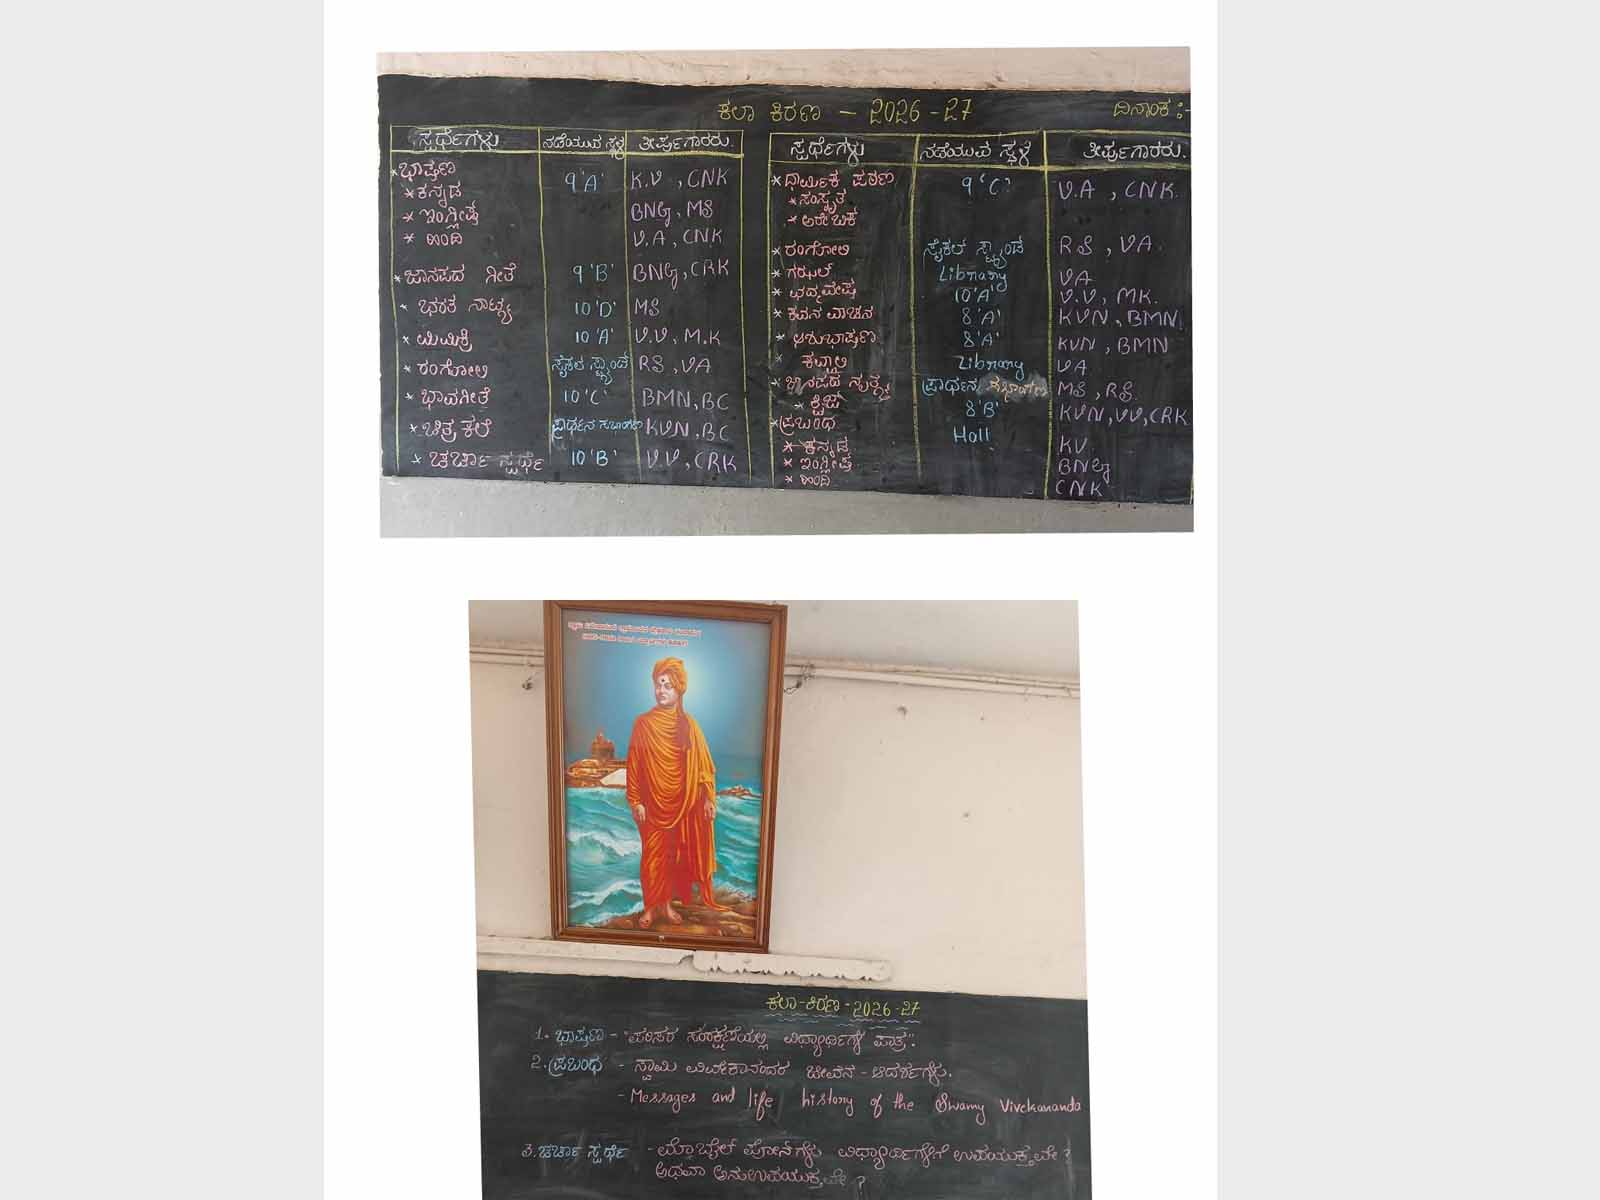 ಕಲಾ ಕಿರಣ - 2026-27
ದಿನಾಂಕ :-
ಸ್ಪರ್ಧೆಗಳು ನಡೆಯುವ ಸ್ಥಳ ತೀರ್ಪುಗಾರರು.
* ಭಾಷಣ 9 'A' K.V , CNK
* ಕನ್ನಡ
* ಇಂಗ್ಲೀಷ BNG, MS
* ಹಿಂದಿ V.A , CNK
* ಜಾನಪದ ಗೀತೆ 9 'B' BNG, CRK
* ಭರತ ನಾಟ್ಯ 10 'D' MS
* ಮಿಮಿಕ್ರಿ 10 'A' V.V , M.K
* ರಂಗೋಲಿ ಸೈಕಲ್ ಸ್ಟ್ಯಾಂಡ RS , VA
* ಭಾವಗೀತೆ 10 'C' BMN, BC
* ಚಿತ್ರಕಲೆ ಪ್ರಾರ್ಥನ KVN, BC
* ಚರ್ಚಾ ಸ್ಪರ್ಧೆ 10 'B' V.V , CRK
ಸ್ಪರ್ಧೆಗಳು ನಡೆಯುವ ಸ್ಥಳ ತೀರ್ಪುಗಾರರು.
* ಧಾರ್ಮಿಕ ಪಠಣ 9 'C' V.A , CNK.
* ಸಂಸ್ಕೃತ
* ಅರೇಬಿಕ
* ರಂಗೋಲಿ ಸೈಕಲ್ ಸ್ಟ್ಯಾಂಡ RS , VA.
* ಗಝಲ್ Library VA
* ಛದ್ಮವೇಷ 10 'A' V.V , MK.
* ಕವನ ವಾಚನ 8 'A' KVN , BMN.
* ಆಶುಭಾಷಣ 8 'A' KVN , BMN
* ಕವ್ವಾಲಿ Library VA
* ಜಾನಪದ ನೃತ್ಯ ಪ್ರಾರ್ಥನ MS , RS.
* ಕ್ವಿಜ್ 8 'B' KVN, VV, CRK
* ಪ್ರಬಂಧ Hall
* ಕನ್ನಡ KV
* ಇಂಗ್ಲೀಷ BNG
* ಹಿಂದಿ CNK
ಕಲಾ-ಕಿರಣ-2026-27
1. ಭಾಷಣ - "ಪರಿಸರ ಸಂರಕ್ಷಣೆಯಲ್ಲಿ ವಿದ್ಯಾರ್ಥಿಗಳ ಪಾತ್ರ".
2. ಪ್ರಬಂಧ - ಸ್ವಾಮಿ ವಿವೇಕಾನಂದರ ಜೀವನ - ಆದರ್ಶಗಳು.
- Messages and life history of the Swamy Vivekananda
3. ಚರ್ಚಾ ಸ್ಪರ್ಧೆ - ಮೊಬೈಲ್ ಫೋನ್‌ಗಳು ವಿದ್ಯಾರ್ಥಿಗಳಿಗೆ ಉಪಯುಕ್ತವೇ ?
ಅಥವಾ ಅನುಉಪಯುಕ್ತವೇ ?